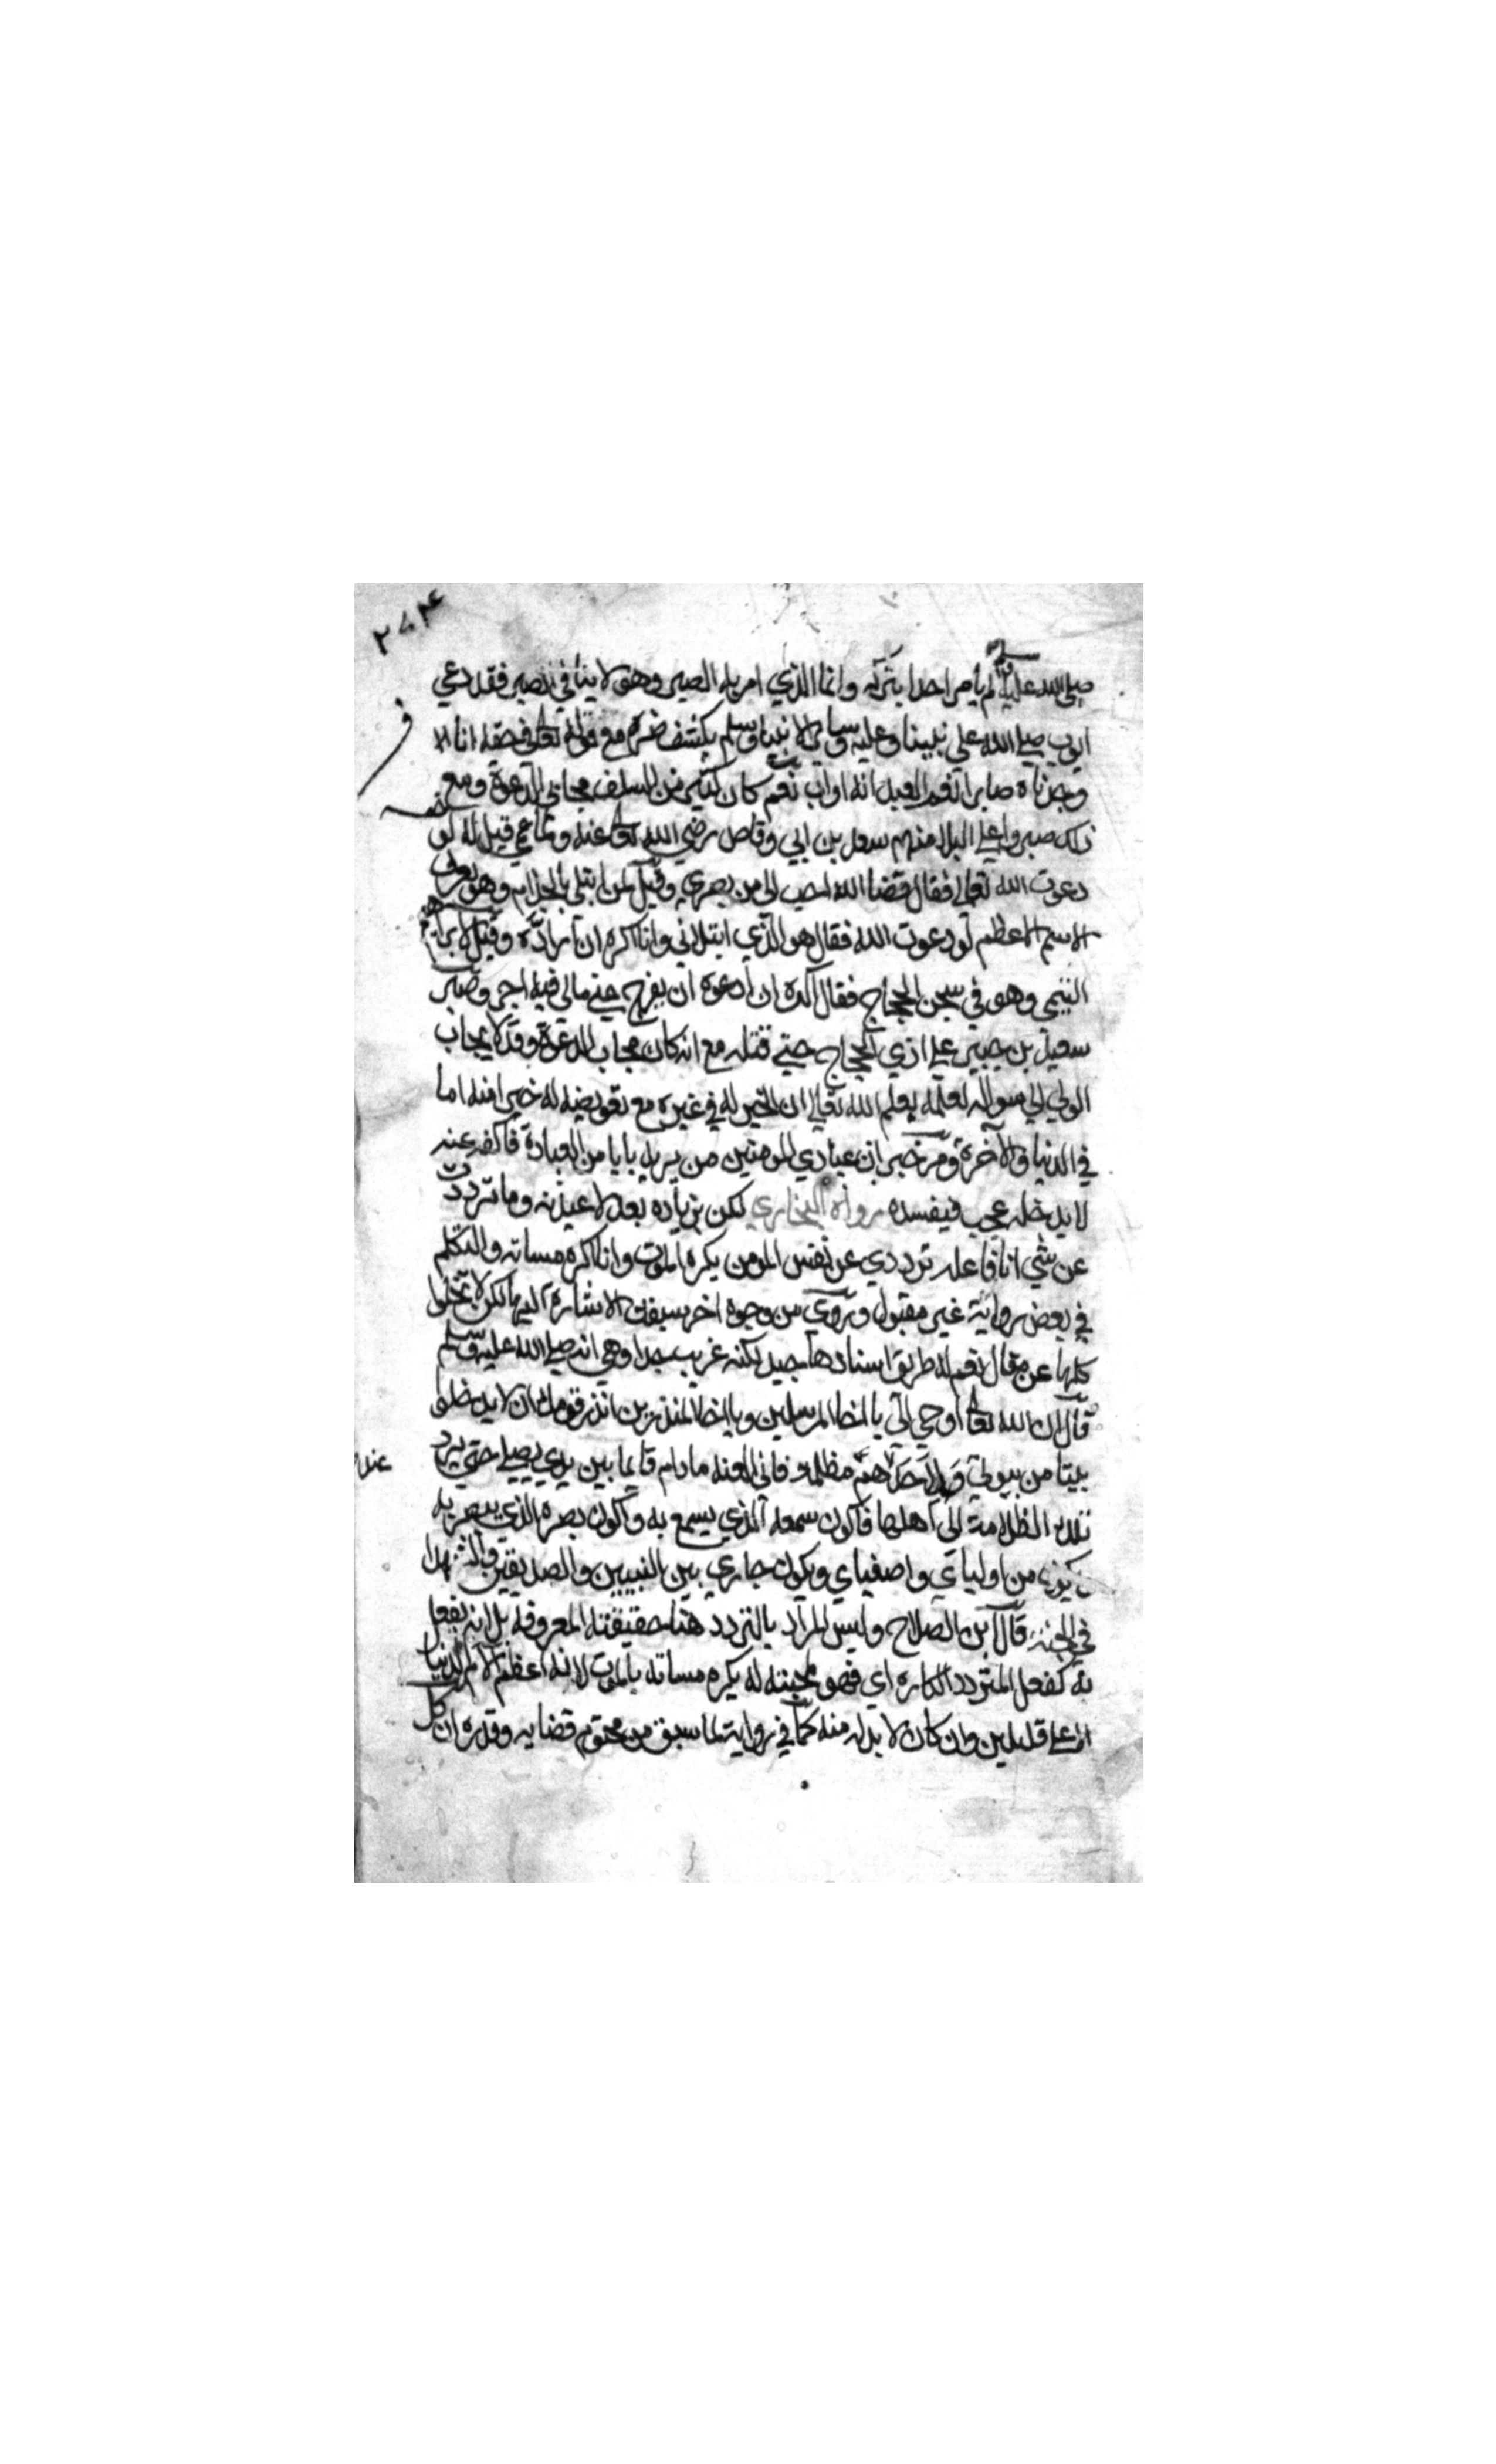 ٢٧٤
صلي الله عليه وسلم لم يامر احدا بتركه وانما الذي امر به الصبر وهو لا ينافي نصبر فقد دعي
ايوب صلي الله علي نبينا وعليه وساير الانبيا وسلم بكشف ضره مع قوله تعالى في حقه انا
وجدناه صابرا نعم العبد انه اواب نعم كان كثير من السلف مجاب الدعوة ومع
ذلك صبروا علي البلا منهم سعد بن ابي وقاص رضي الله تعالى عنه وقد عمي قيل له لو
دعوت الله تعالى فقال قضا الله احب الي من بصري وقيل لمن ابتلي بالجذام وهو يعرف
الاسم الاعظم لو دعوت الله فقال هو الذي ابتلاني وانا اكره ان اراده وقيل لابراهيم
التيمي وهو في سجن الحجاج فقال اكره ان ادعوه ان يفرج عني ما لي فيه اجر وصبر
سعيد بن جبير علي اذي الحجاج حتي قتله مع انه كان مجاب الدعوة وقد لا يجاب
الولي الي سواله لعلمه يعلم الله تعالي ان الخير له في غيره مع تعويضه له خيرا منه اما
في الدنيا والآخرة ومر خبر ان عبادي المومنين من يريد بابا من العبادة فاكفه عنه
لا يدخله عجب فيفسده رواه البخاري لكن بزيادة بعد لاعيذنه وما ترددت
عن شي انا فاعله ترددي عن نفس المومن يكره الموت وانا اكره مساته والتكلم
في بعض رواته غير مقبول وروي من وجوه اخر سبقت الاشارة اليها لكن لا تخلوا
كلها عن مقال نعم له طريق اسنادها جيد لكنه غريب جدا وهي انه صلي الله عليه وسلم
قال ان الله تعالى اوحي الي يا اخا المرسلين ويا اخا المنذرين انذر قومك ان لا يدخلوا
بيتا من بيوتي ولاحد عندهم مظلمة فاني العنه ما دام قايما بين يدي يصلي حتي يرد
تلك الظلامة الي اهلها فاكون سمعه الذي يسمع به واكون بصره الذي يبصر به
ويكون من اوليائي واصفياي ويكون جاري بين النبيين والصديقين والشهدا
في الجنة قال ابن الصلاح وليس المراد بالتردد هنا حقيقته المعروفة بل انه يفعل
به كفعل المتردد الكاره اي فهو لمحبته له يكره مساته بالموت لانه اعظم آلام الدنيا
الا علي قليلين وان كان لا بد له منه كما في رواية لما سبق من محتوم قضايه وقدره ان كل